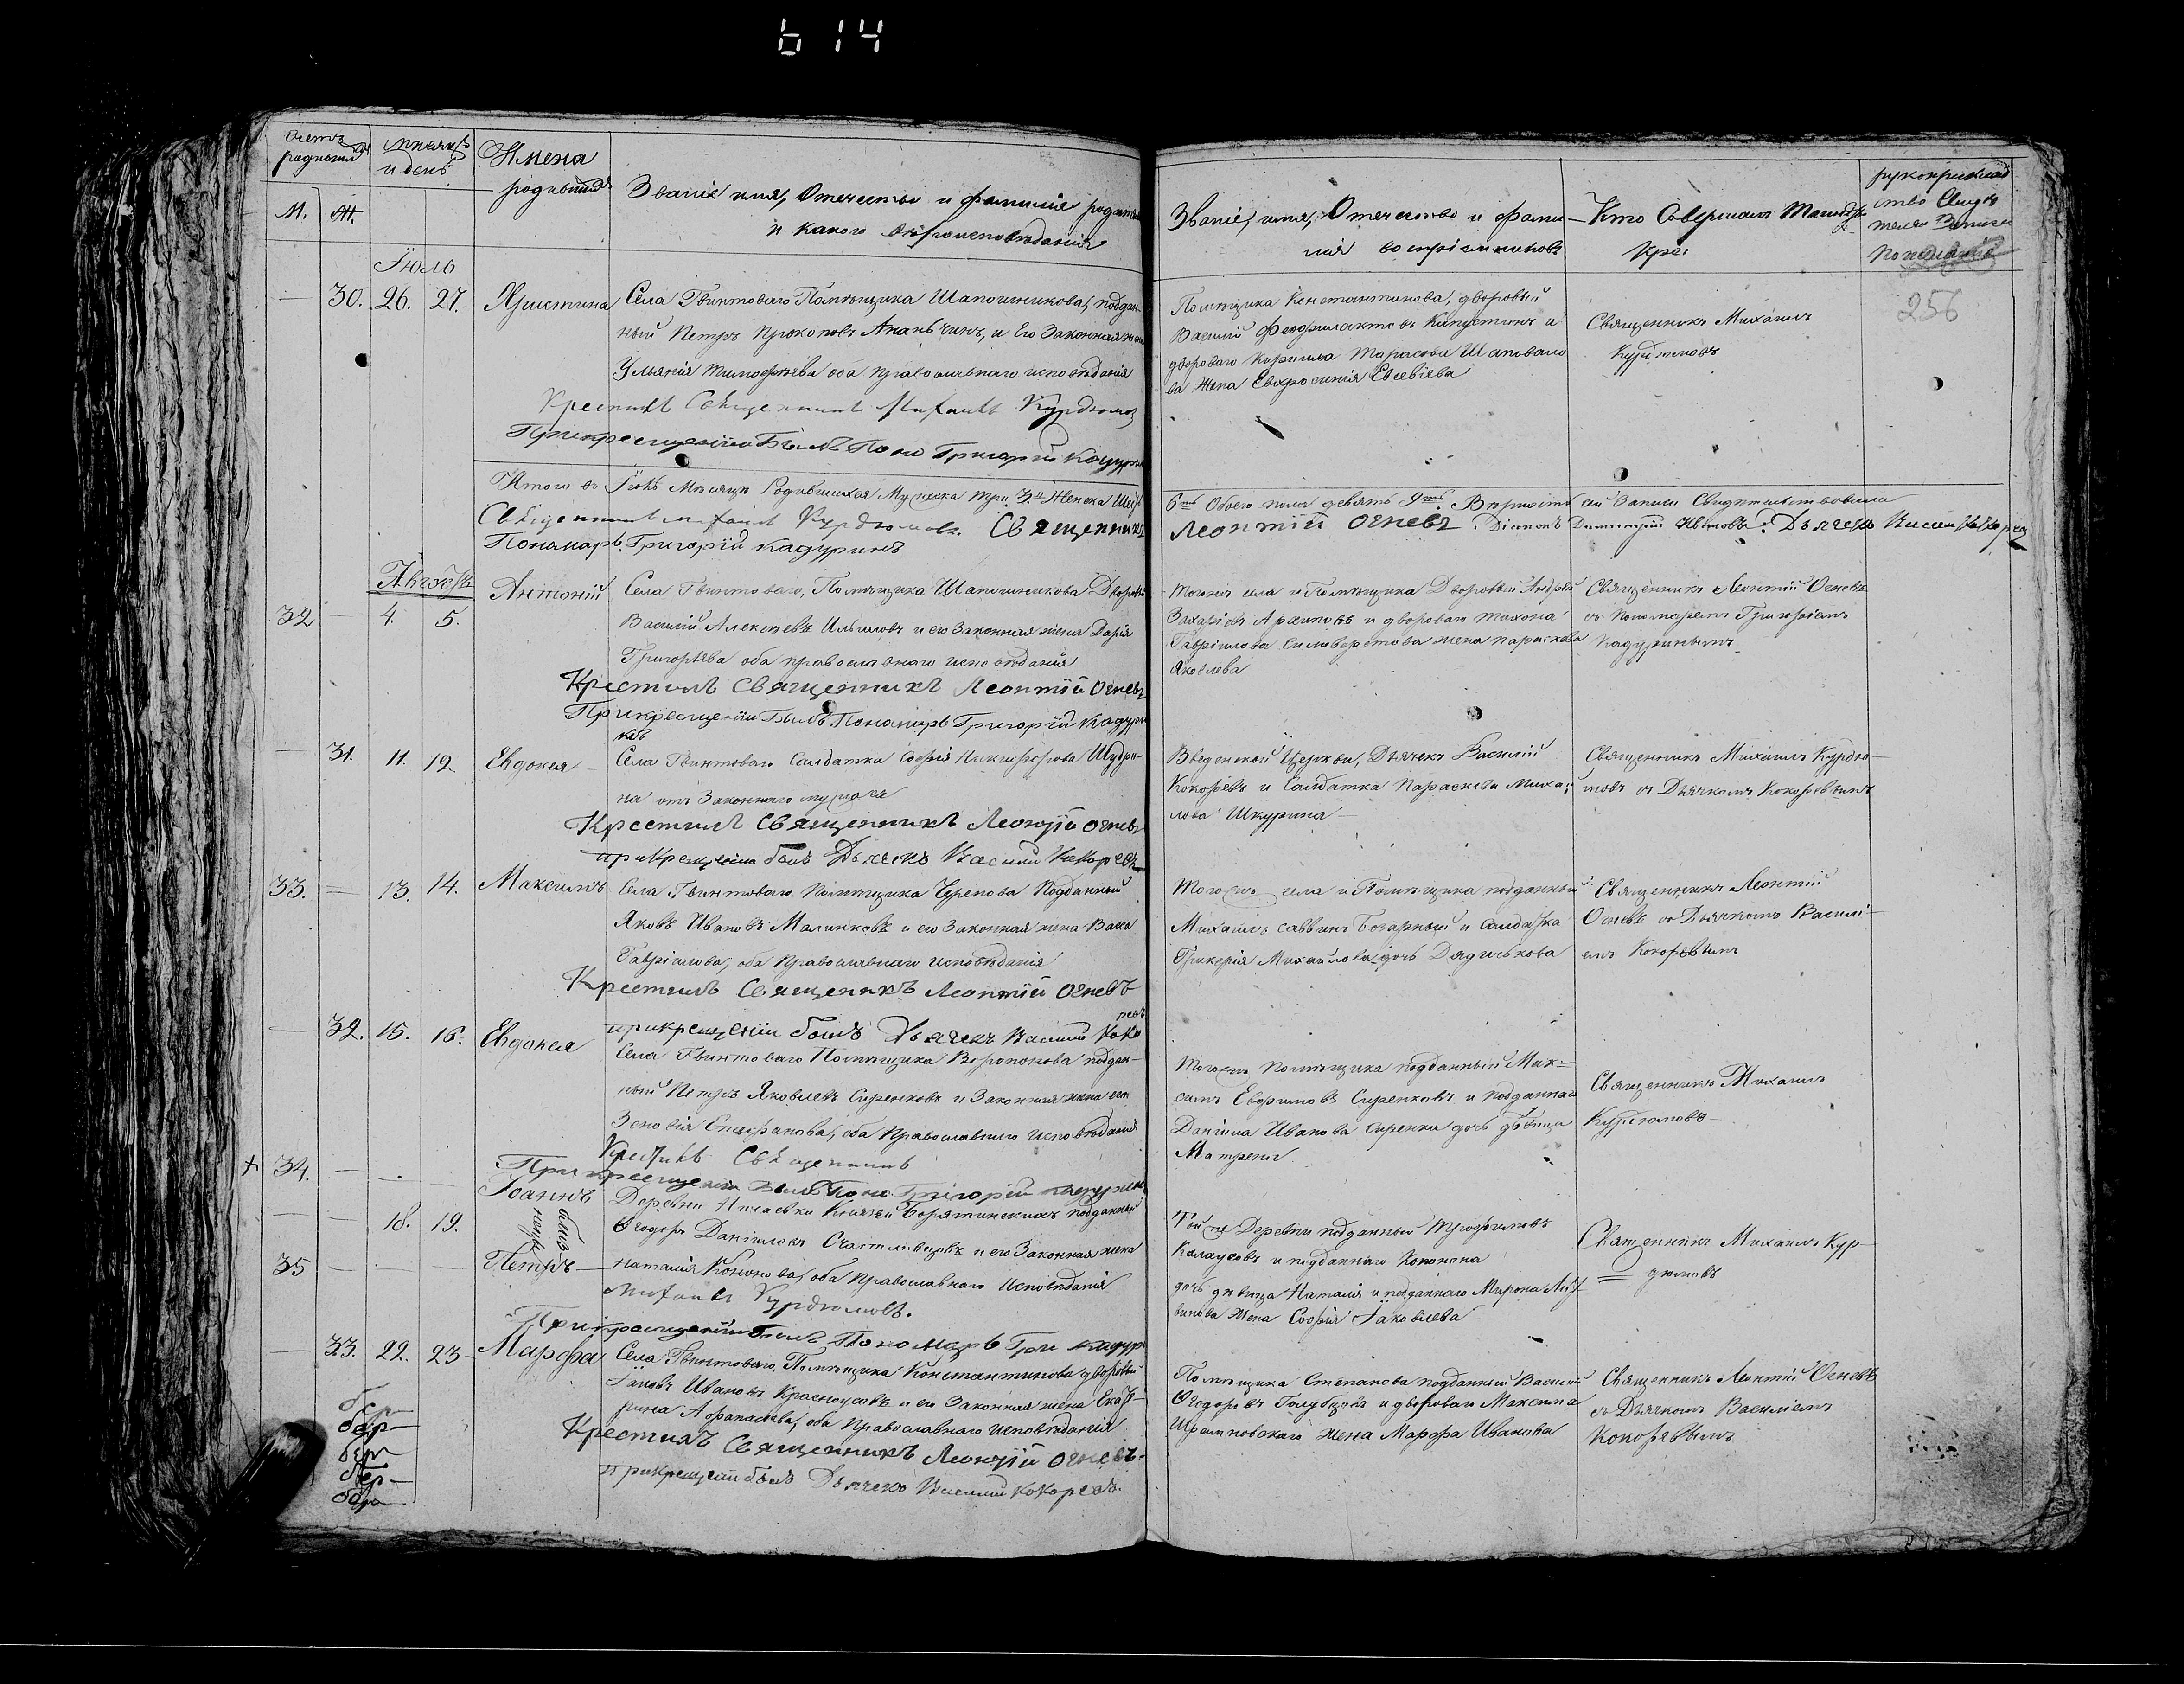 614
Счетъ родившихся
М. Ж.
Мѣсяцъ и день
Имена родившихся
Званіе имя, Отечество и фамилія родителей
и какого вѣроисповѣданія
Званіе, имя, Отечество и фами-
лія воспріемниковъ
Кто Совершалъ Таинство
Кре:
рукоприклад
ство Свидѣ
телей Записи
По желанію
256
Іюль
— 30. 26. 27. Христина
Села Гвинтоваго Помѣщика Шапошникова, поддан-
ный Петръ Прокоповъ Ананьчинъ, и Его Законная жена
Ульянія Тимофѣева оба православнаго исповѣданія
Крестилъ Священникъ Михаилъ Курдюмов
При крещеніи Былъ Поно Григорій Кадурин
Помѣщика Константинова, дворовый
Василій Феофилактовъ Капустинъ и
двороваго Кирилла Тарасова Шаповало
ва Жена Евфросинія Евсевіева
Священникъ Михаилъ
Курдюмовъ
Итого въ Іюлѣ Мѣсяцѣ Родившихся Мужеска три 3 Женска Шесть
6ть Обоего пола девять 9ть. Вѣрность сей Записи Свидѣтельствовали
Священникъ Михаилъ Курдюмовъ. Священникъ
Леонтій Огневъ. Діаконъ Димитрій Ивановъ. Дьячекъ Василій Кокорев
Пономарь Григорій Кадуринъ
Августъ
32 — 4. 5. Антоній
Села Гвинтоваго, Помѣщика Шапошникова Дворовый
Василій Алексѣевъ Ильиновъ и его Законная жена Дарія
Григорьева оба православнаго исповѣданія
Крестилъ Священникъ Леонтій Огневъ
При крещеніи Былъ Пономарь Григорій Кадури
нъ
Того же села и Помѣщика Дворовый Андрей
Захаріевъ Архиповъ и двороваго Тихона
Гавріилова Сильверстова жена Параскева
Яковлева
Священникъ Леонтій Огневъ
съ Пономаремъ Григоріемъ
Кадуринымъ
— 31. 11. 12. Евдокея
Села Гвинтоваго Салдатка Софія Никифорова Шкури-
на отъ Законнаго мужа
Крестилъ Священникъ Леонтій Огневъ
при крещеніи былъ Дьячекъ Василій Кокоревъ
Введенской Церкви, Дьячекъ Василій
Кокоревъ и Салдатка Параскева Михаи
лова Шкурина —
Священникъ Михаилъ Курдю-
мовъ съ Дьячкомъ Кокоревымъ
33. — 13. 14. Максимъ
Села Гвинтоваго Помѣщика Черепова Подданный
Яковъ Ивановъ Малинковъ и его Законная жена Васса
Гавріилова, оба Православнаго исповѣданія
Крестилъ Священикъ Леонтій Огневъ
при крещеніи былъ Дьячекъ Василій Коко
ревъ
Того же села и Помѣщика подданный
Михаилъ Саввинъ Бочарный и Салдатка
Гликерія Михайлова дочь Дядичкова
Священникъ Леонтій
Огневъ съ Дьячкомъ Васили-
емъ Кокоревымъ
— 32. 15. 16. Евдокея
Села Гвинтоваго Помѣщика Воропонова поддан-
ный Петръ Яковлевъ Сиренковъ и Законная жена его
Зеновія Епифанова, оба Православнаго исповѣданія
Крестилъ Священникъ
При крещеніи Былъ Поно Григорій Кадурин
Того же Помѣщика подданный Мак-
симъ Ефимовъ Сиренковъ и подданнаго
Даніила Иванова Сиренка дочь дѣвица
Матрена
Священникъ Михаилъ
Курдюмовъ —
+ 34. — Іоаннъ
близ
нецы
— 18. 19.
35 — Петръ —
Деревни Князей Борятинскихъ подданный
Ѳеодоръ Даніиловъ Счастливцевъ и его Законная жена
Наталія Кононова, оба Православнаго Исповѣданія
Михаилъ Курдюмовъ.
При крещеніи Былъ Пономарь Гри Кадур
Той же Деревни подданный Трофимовъ
Калаусовъ и подданнаго Кононона
дочь дѣвица Наталія и подданнаго Мирона Лит-
винова Жена Софія Іаковлева
Священникъ Михаилъ Кур-
дюмовъ
— 33. 22. 23 — Марфа
Села Гвинтоваго, Помѣщика Константинова дворовый
Іаковъ Ивановъ Красноусовъ и его Законная жена Екате-
рина Афанасьева, оба Православнаго исповѣданія
Крестилъ Священникъ Леонтій Огневъ.
при крещеніи былъ Дьячекъ Василій Кокоревъ.
Помѣщика Степанова подданный Василій
Ѳеодоровъ Голубцовъ и двороваго Максима
Жена Марфа Иванова
Священникъ Леонтій Огневъ
съ Дьячкомъ Василіемъ
Кокоревымъ